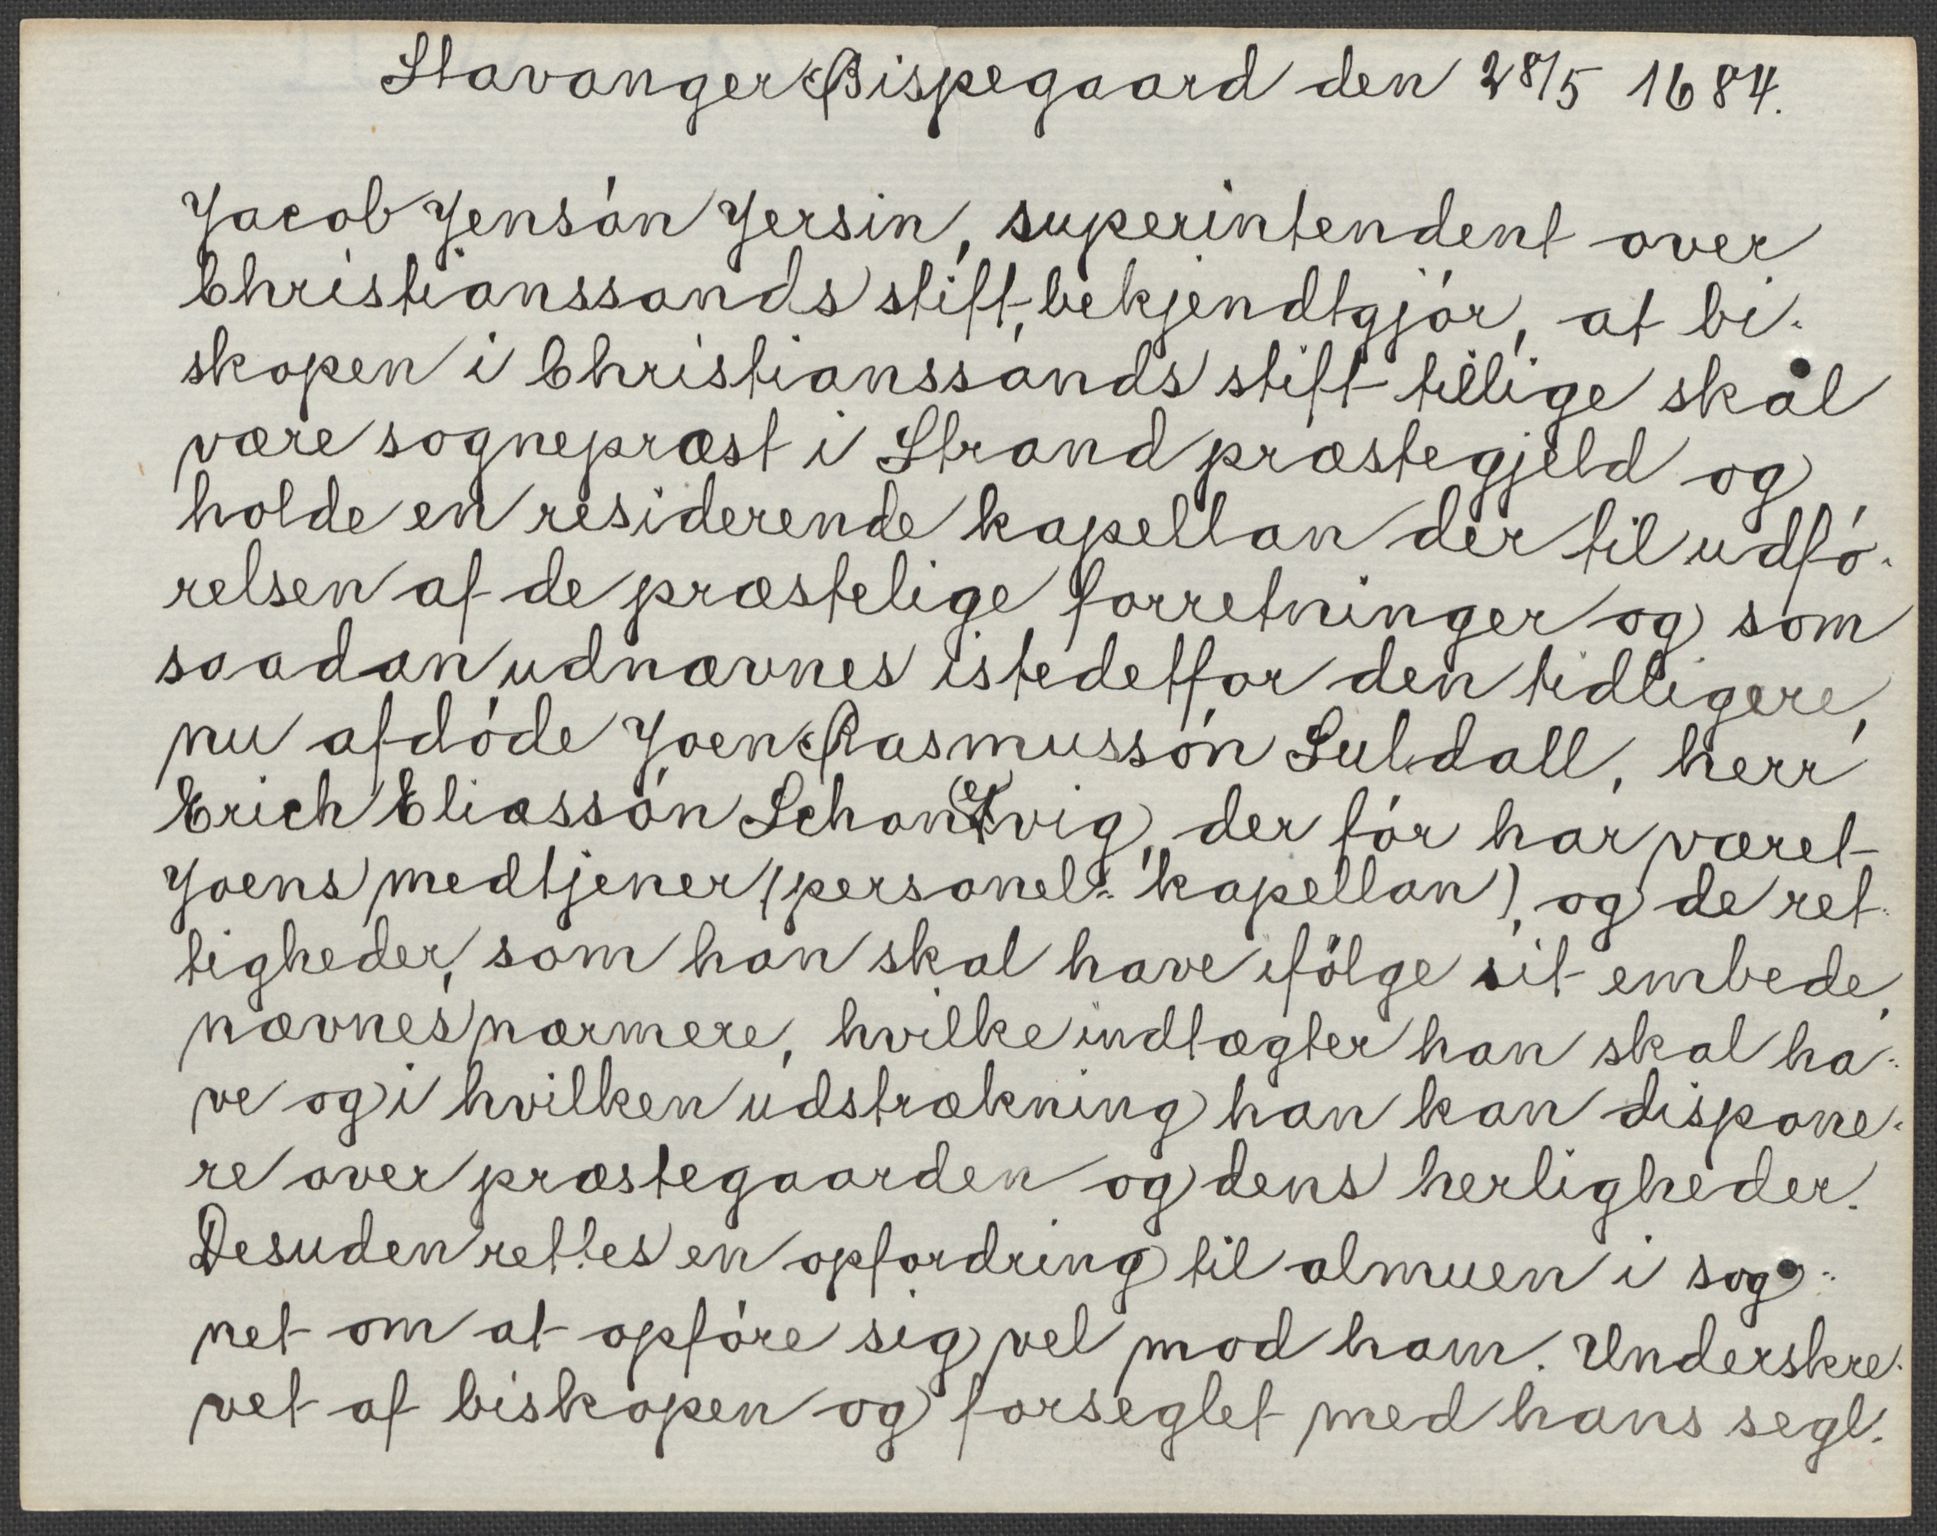 Stavanger Bispegaard den 28/5 1684.
Jacob Jensón Jersin, superintendent over
Christianssands stift, bekjendtgjór, at bi-
skopen i Christianssands stift tillige skal
være sognepræst i Strand præstegjeld og
holde en residerende kapellan der til udfó-
relsen af de præstelige forretninger og som
saadan udnævnes istedetfor den tidligere,
nu afdóde Joen Rasmussón Suldall, herr
Erich Eliassón Schanvig, der fór har været
Joens medtjener (personel-kapellan), og de ret-
tigheder, som han skal have ifölge sit embede,
nævnes nærmere, hvilke indtægter han skal ha-
ve og i hvilken udstrækning han kan dispone-
re over præstegaarden og dens herligheder.
Desuden rettes en opfordring til almuen i sog-
net om at opfóre sig vel mod ham. Underskre-
vet af biskopen og forseglet med hans segl.